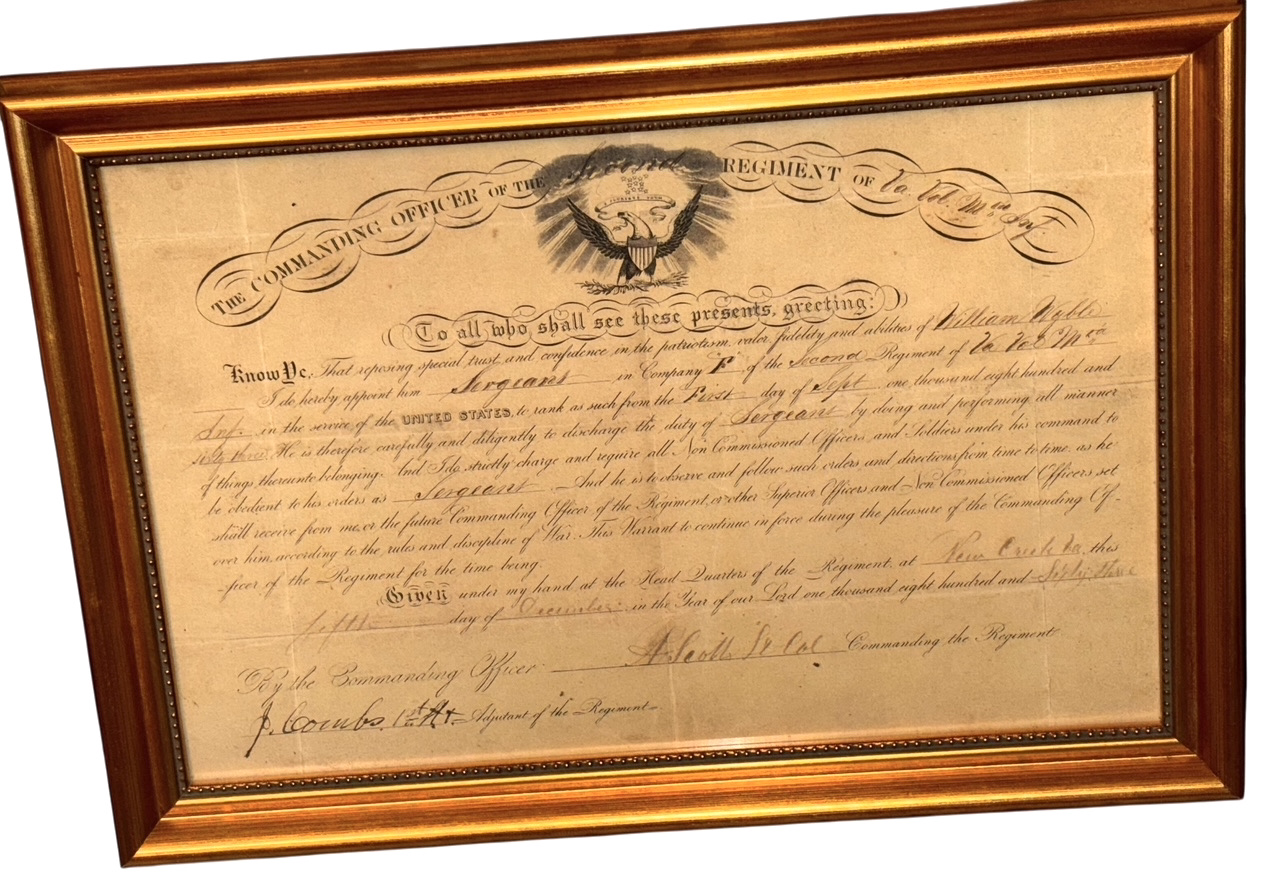 THE COMMANDING OFFICER OF THE Second REGIMENT OF Va. Vol. Mtd Inf
To all who shall see these presents, greeting:
Know Ye, That reposing special trust and confidence in the patriotism, valor, fidelity and abilities of William
I do hereby appoint him Sergeant in Company F of the Second Regiment of Va Vol Mtd
Inf. in the service of the UNITED STATES, to rank as such from the First day of Sept one thousand eight hundred and
sixty three. He is therefore carefully and diligently to discharge the duty of Sergeant by doing and performing all manner
of things thereunto belonging. And I do strictly charge and require all Non Commissioned Officers and Soldiers under his command to
be obedient to his orders as Sergeant. And he is to observe and follow such orders and directions from time to time, as he
shall receive from me, or the future Commanding Officer of the Regiment, or other Superior Officers and Non Commissioned Officers set
over him, according to the rules and discipline of War. This Warrant to continue in force during the pleasure of the Commanding Of-
-ficer of the Regiment for the time being.
Given under my hand at the Head Quarters of the Regiment, at New Creek Va. this
fifth day of December in the Year of our Lord one thousand eight hundred and Sixty Three
By the Commanding Officer: A. Scott Lt Col Commanding the Regiment
J. Combs 1st Lt. Adjutant of the Regiment